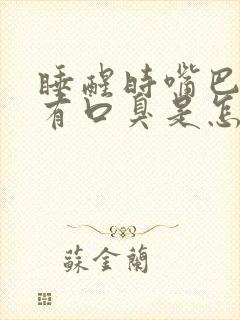 睡醒時嘴巴
有口臭是怎
蘇金蘭